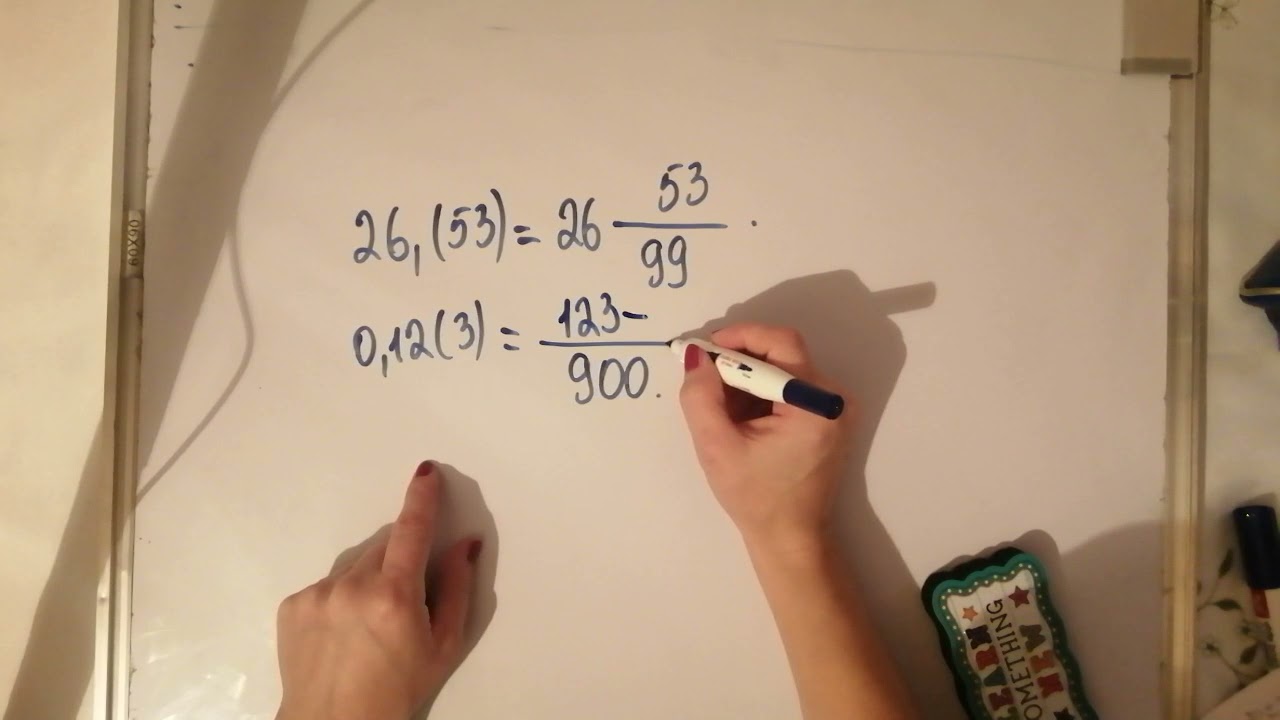 26,(53) = 26 53/99 .
0,12(3) = 123-/900.
60X90
LEARN
SOMETHING
NEW